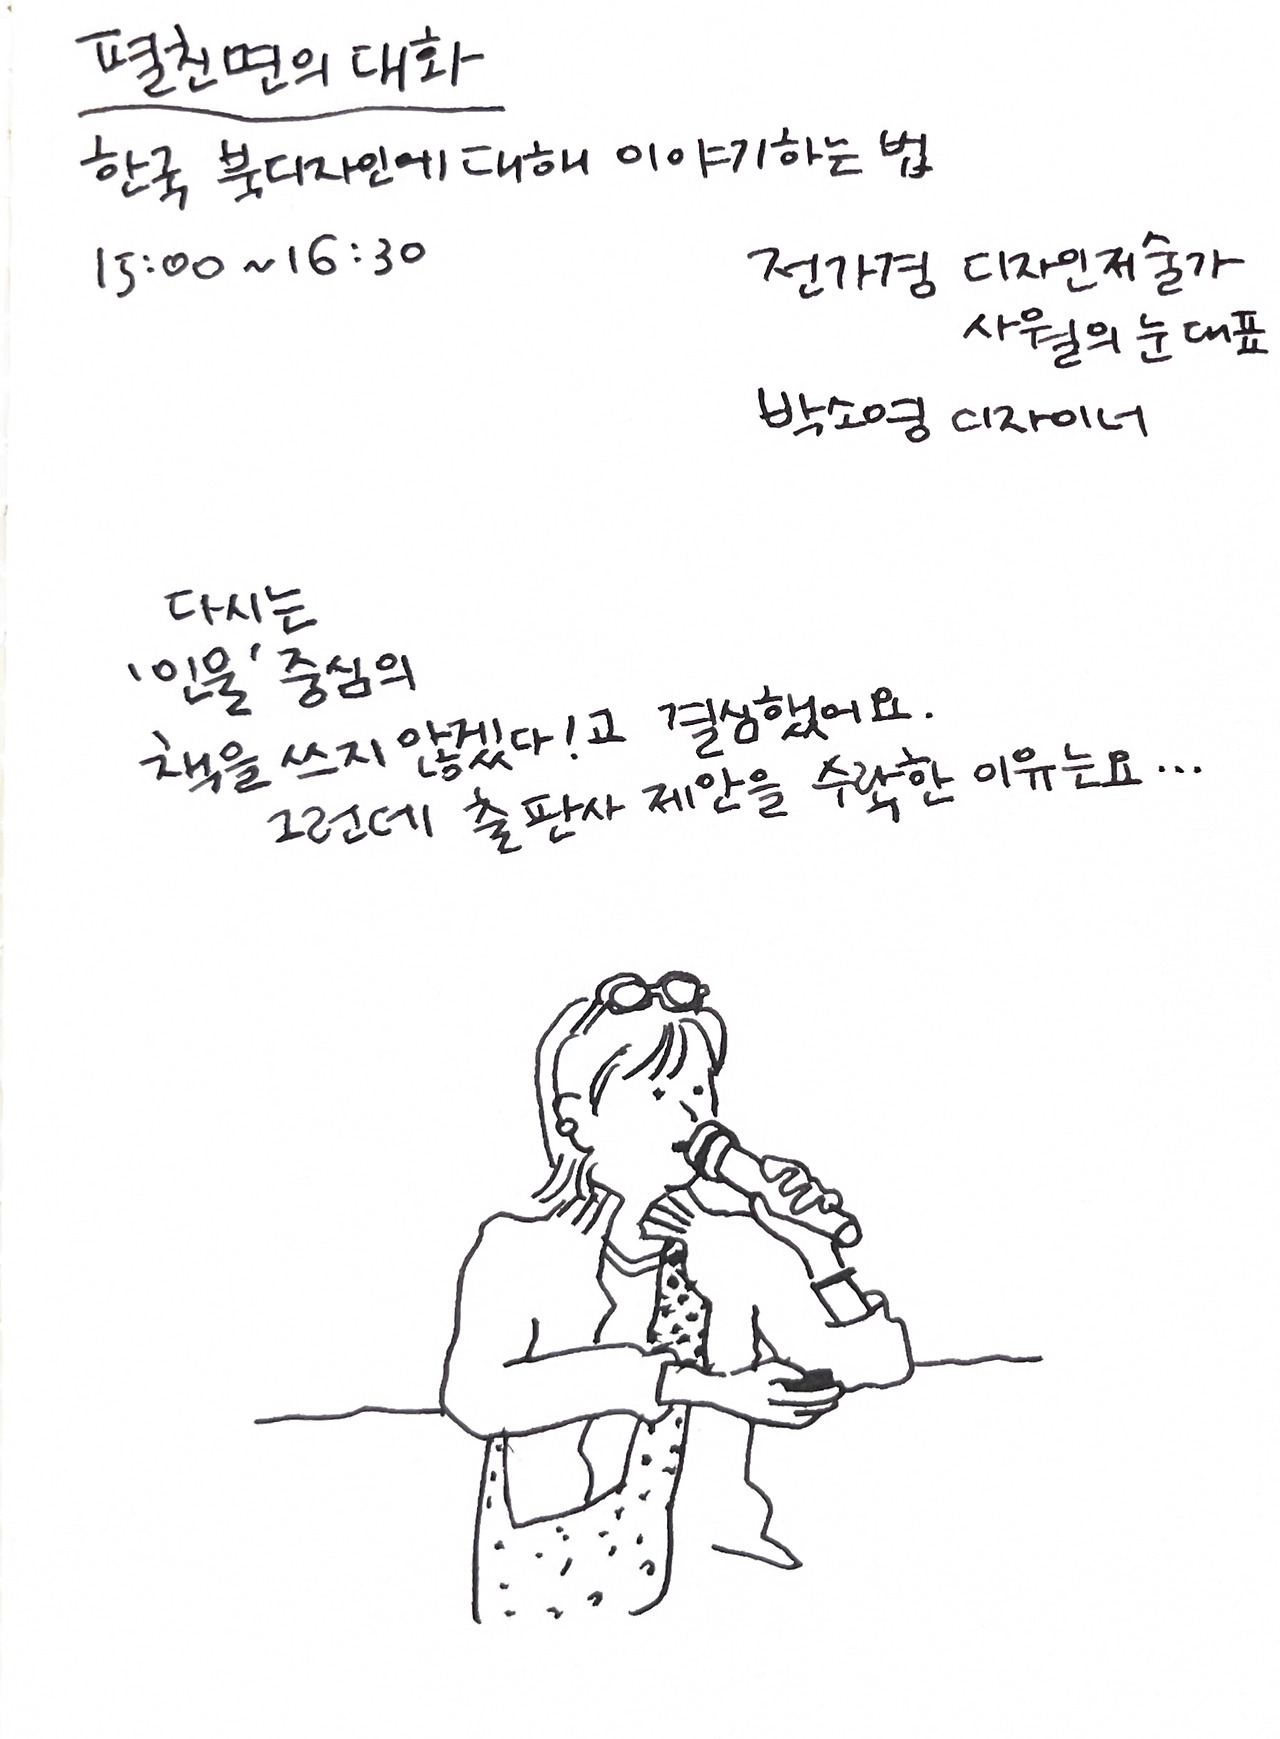 펼친면의 대화
한국 북디자인에 대해 이야기하는 법
15:00 ~ 16:30
전가경 디자인저술가
사월의 눈 대표
박소영 디자이너
다시는
'인물' 중심의
책을 쓰지 않겠다!고 결심했어요.
그런데 출판사 제안을 수락한 이유는요...